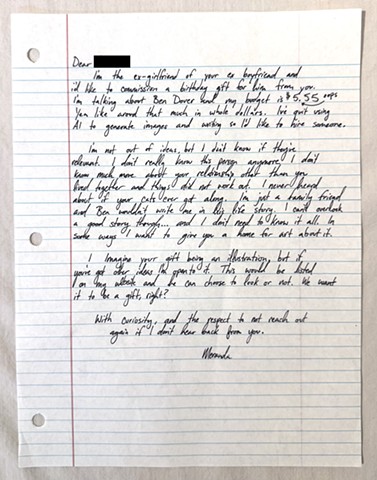 Dear
I'm the ex-girlfriend of your ex boyfriend and
i'd like to commission a birthday gift for him from you.
I'm talking about Ben Dover and my budget is $5,55 oops
Yan like around that much in whole dollars. I've quit using
AI to generate images and writing so I'd like to hire someone.
I'm not out of ideas, but I don't know if they're
relevant. I don't really know this person anymore. I don't
know much more about your relationship other than you
lived together and things did not work out. I never heard
about if your cats ever got along. I'm just a family friend
and Ben wouldn't write me in his life story. I can't overlook
a good story though... and I don't need to know it all. In
some ways I want to give you a home for art about it.
I imagine your gift being an illustration, but if
you've got other ideas I'm open to it. This would be listed
on my website and he can choose to look or not. We want
it to be a gift, right?
With curiosity, and the respect to not reach out
again if I don't hear back from you.